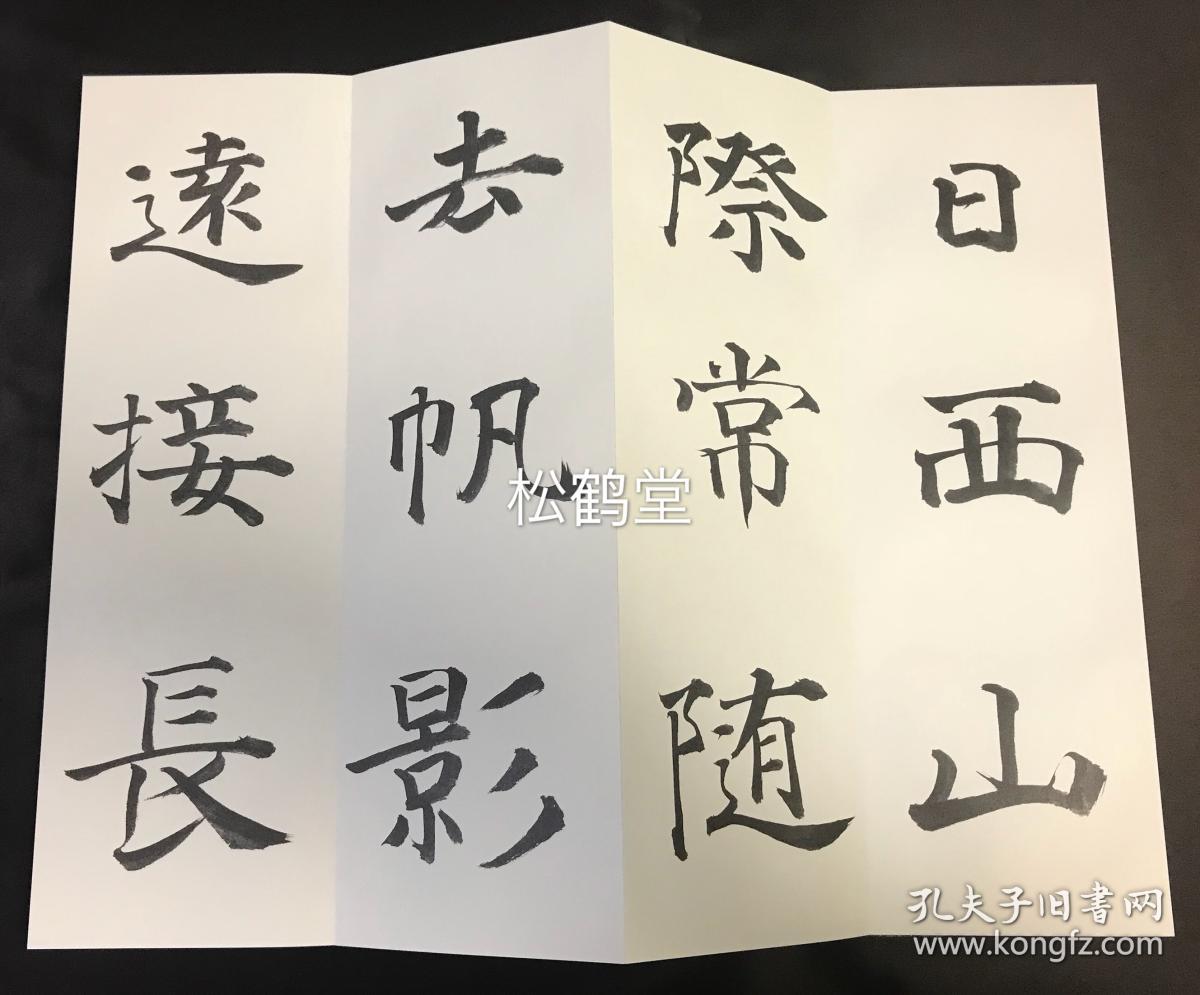 日西山
際常随
去帆影
遠接長
松鹤堂
孔夫子旧書网
www.kongfz.com